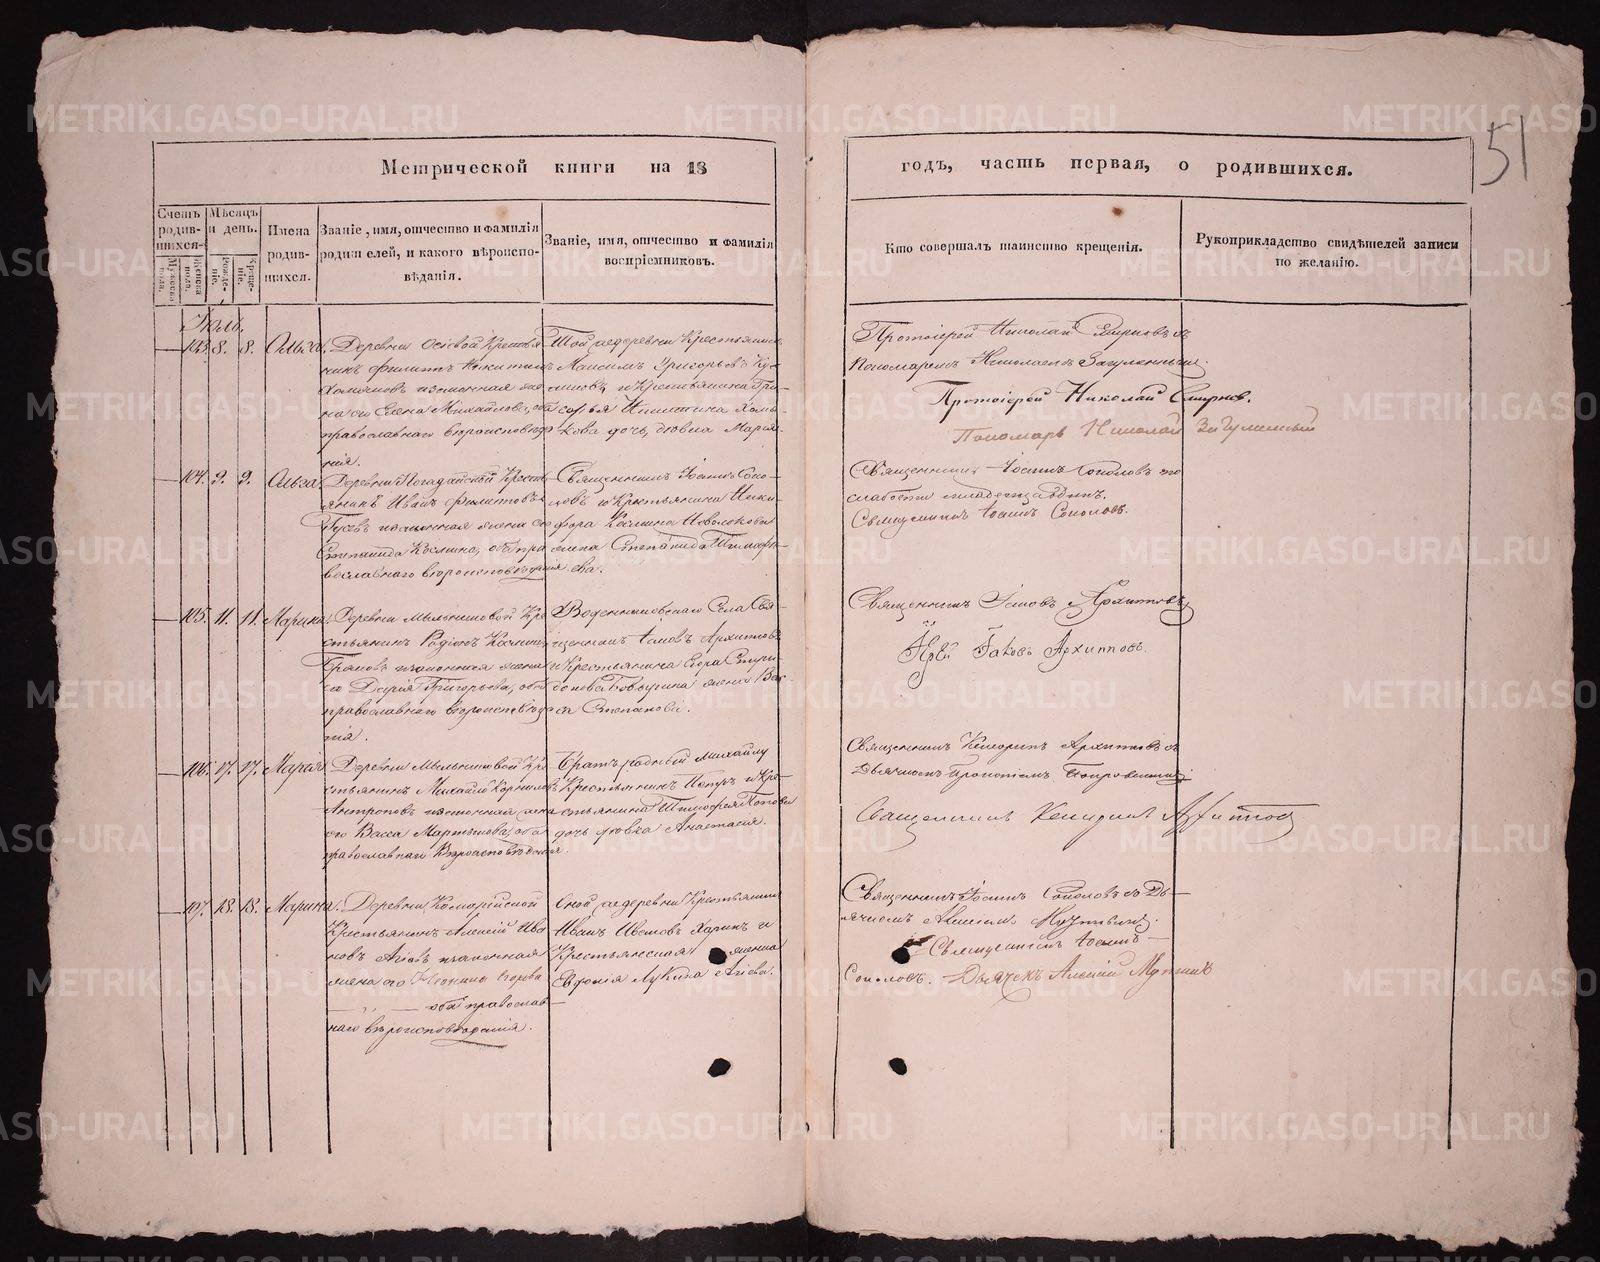 Метрической книги на 18
годъ, часть первая, о родившихся.
51
Счетъ родив-шихся.
Мужеска пола.
Женска пола.
Мѣсяцъ и день.
Рожде-ніе.
Креще-ніе.
Имена родив-шихся.
Званіе, имя, отчество и фамилія
родителей, и какого вѣроиспо-
вѣданія.
Званіе, имя, отчество и фамилія
воспріемниковъ.
Кто совершалъ таинство крещенія.
Рукоприкладство свидѣтелей записи
по желанію.
Іюль.
103. 8. 8. Ольга.
Деревни Осіовой Крестья
нинъ Филиппъ Никитинъ
Хомяковъ изаконная же
на его Елена Михайлова, оба
православнаго вѣроисповѣда
нія.
Той же деревни Крестьянинъ
Максимъ Григорьевъ
и Крестьянина
Никитина Хомя-
кова дочь, дѣвка Марія.
Протоіерей Николай Смирновъ съ
Пономаремъ Николаемъ
Протоіерей Николай Смирнов.
Пономарь Николай
104. 9. 9. Ольга.
Деревни Крест
янинъ Иванъ Филиповъ
Гусевъ изаконная жена его
Степанида Козмина, оба пра
вославнаго вѣроисповѣданія
Священникъ Іоаннъ Соко-
ловъ и Крестьянина Ники
фора Козмина
жена Степанида Тимофе-
ева.
Священникъ Іоаннъ Соколовъ по
слабости младенца одинъ.
Священникъ Іоаннъ Соколовъ.
105. 11. 11. Марина.
Деревни Мыльниковой Кре
стьянинъ Родіонъ Козминъ
изаконная жена
его Дарія Григорьева, оба
православнаго вѣроисповѣда
нія.
Воденниковскаго Села Свя-
щенникъ Іаковъ Архиповъ
и Крестьянина Егора Спири
донова жена Вас
са Степанова.
Священникъ Іаковъ Архиповъ
Іерей Іаковъ Архипповъ.
106. 17. 17. Марія
Деревни Мыльниковой Кре
стьянинъ Михайло Корниловъ
Антроповъ изаконная жена
его Васса Мартынова, оба
православнаго Вѣроисповѣданія.
Братъ родный Михайлу
Крестьянинъ Петръ и Кре-
стьянина Тимофея Попова
дочь дѣвка Анастасія.
Священникъ Архиповъ съ
Дьячкомъ
Священникъ Архипов
107. 18. 18. Марина.
Деревни Комарійской
Крестьянинъ Алексій Ива
новъ Агѣевъ изаконная
жена его Егорова
— „ — оба православ-
наго вѣроисповѣданія.
Той же деревни Крестьянинъ
Иванъ Ивановъ Харинъ и
Крестьянская женка
Евдокія Лукина Агѣева.
Священникъ Іоаннъ Соколовъ съ Дь-
ячкомъ
Священникъ Іоаннъ
Соколовъ. Дьячекъ Алексій
METRIKI.GASO-URAL.RU